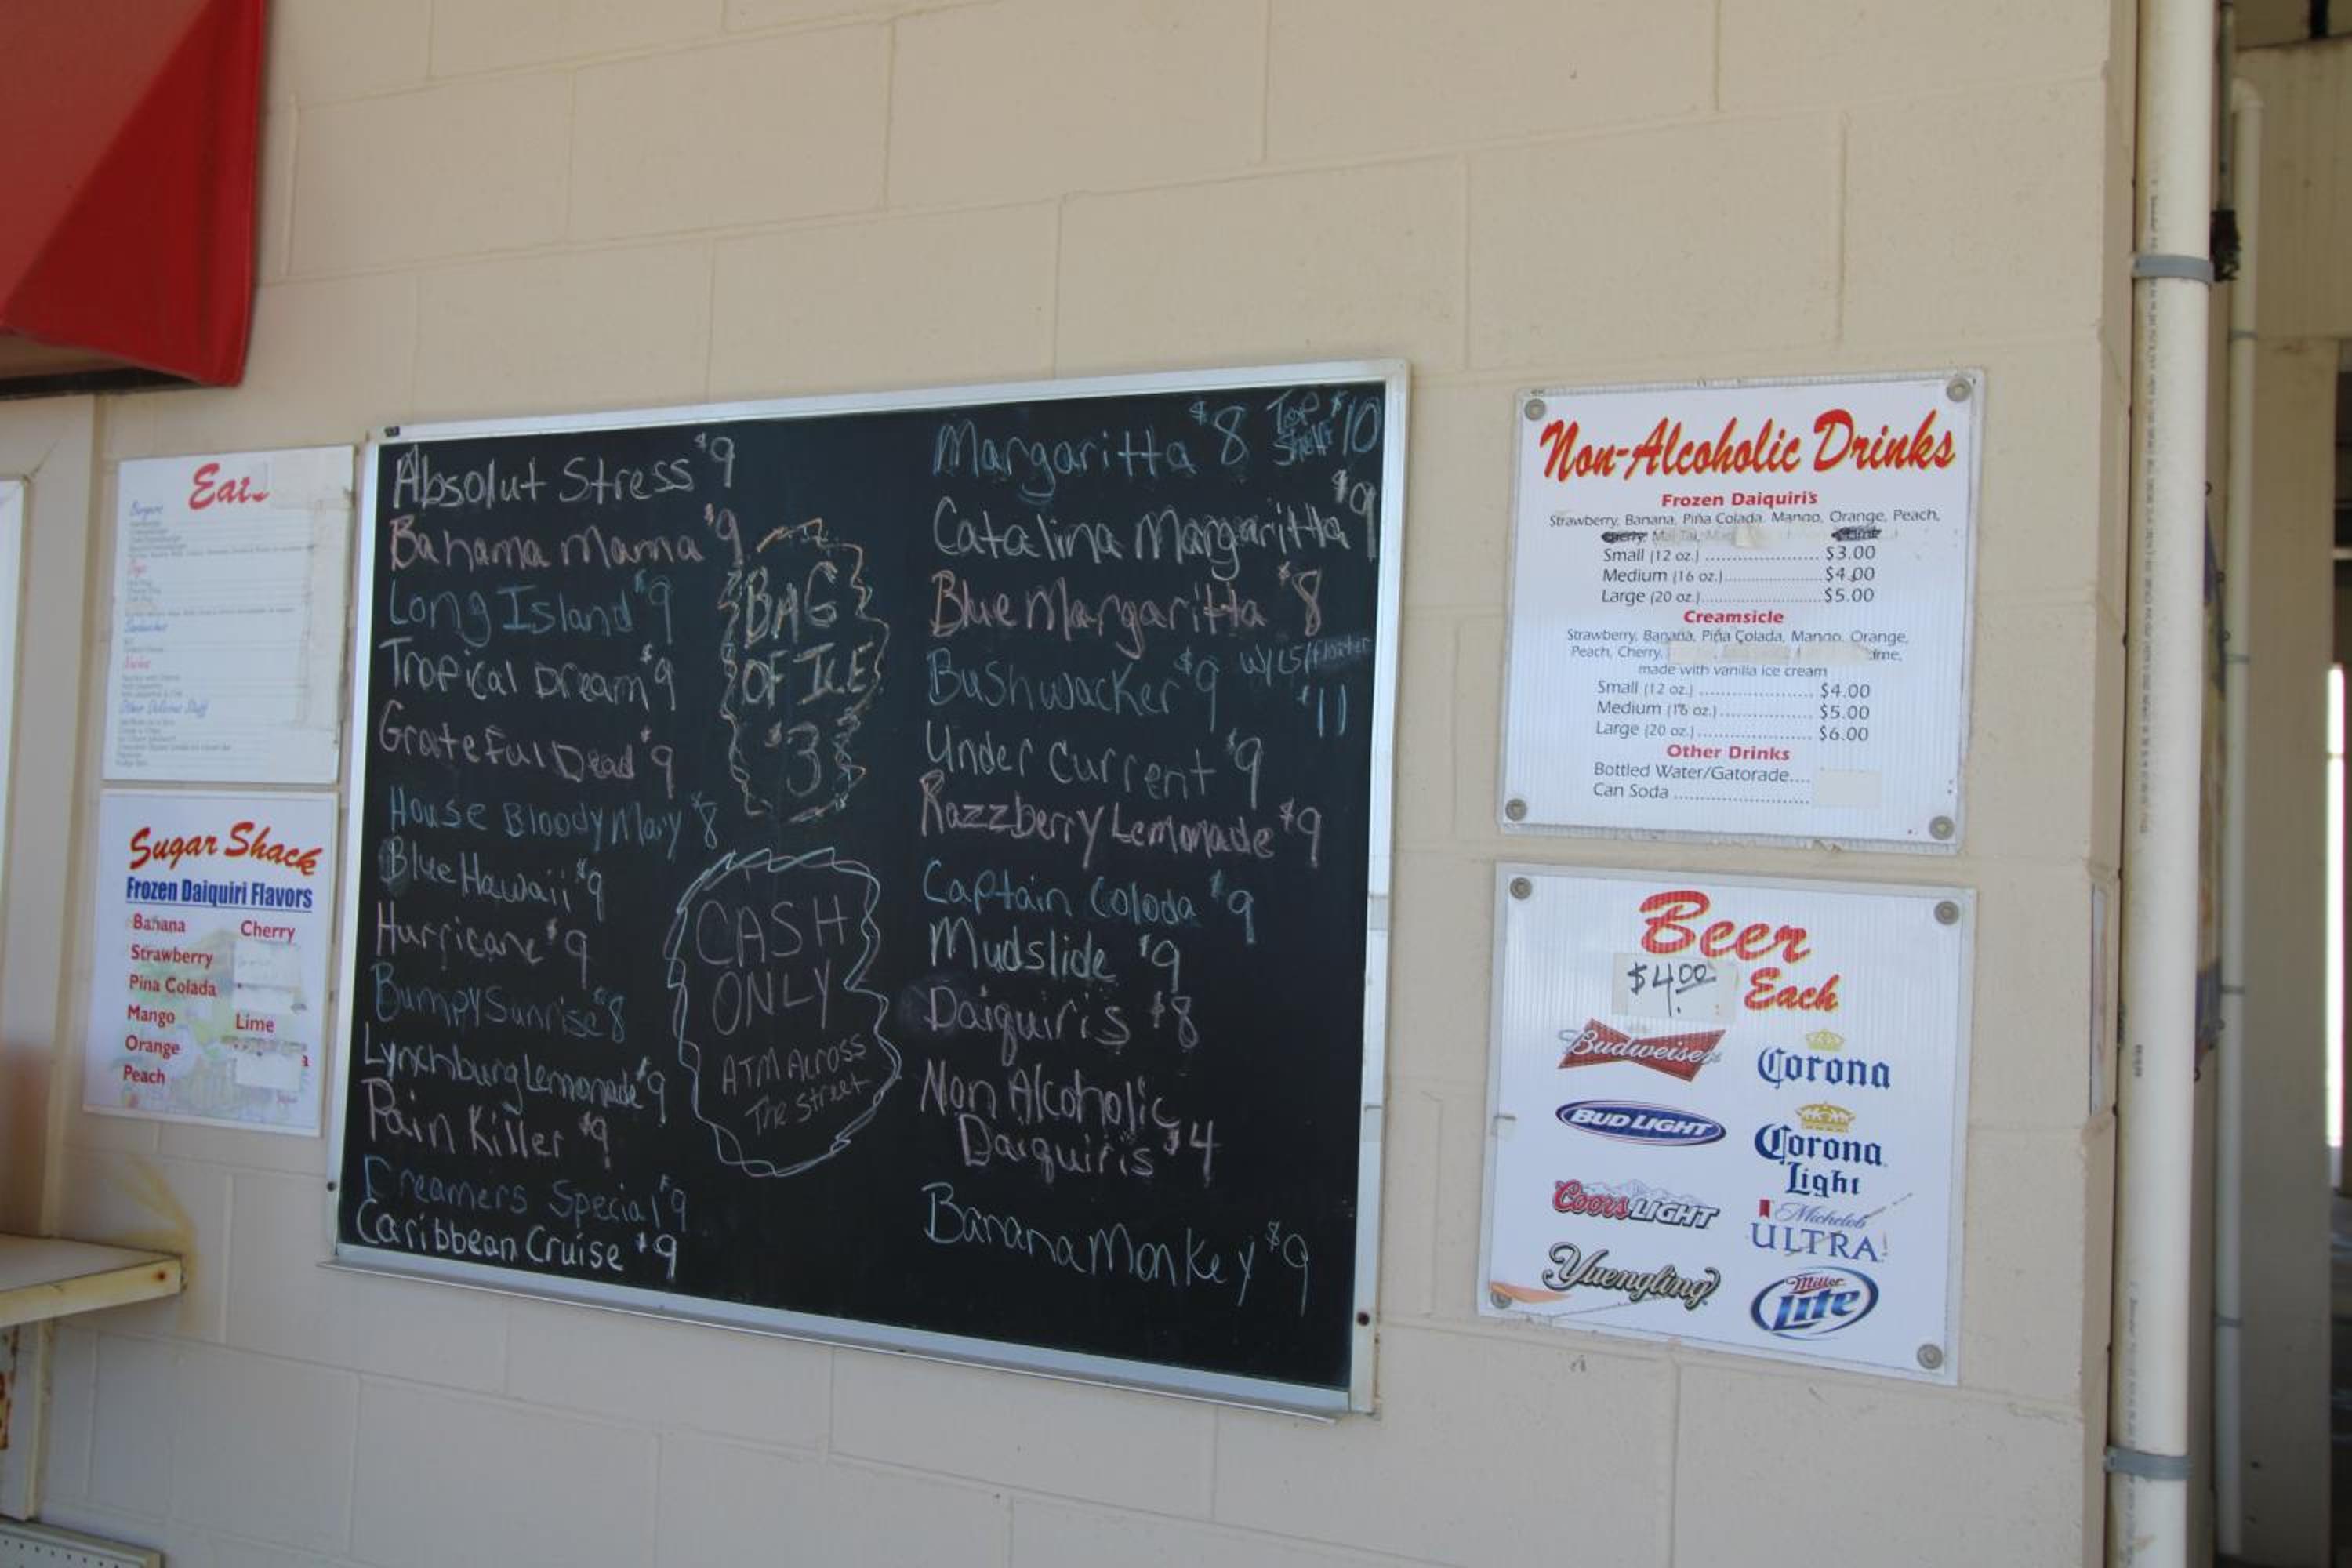 Eat
Burgers
Dogs
Sandwiches
Nachos
Other Delicious Stuff
Sugar Shack
Frozen Daiquiri Flavors
Banana
Strawberry
Pina Colada
Mango
Orange
Peach
Cherry
Lime
Absolut Stress $9
Bahama Mama $9
Long Island $9
Tropical Dream $9
Grateful Dead $9
House Bloody Mary $8
Blue Hawaii $9
Hurricane $9
Bumpy Sunrise $8
Lynchburg Lemonade $9
Pain Killer $9
Dreamers Special $9
Caribbean Cruise $9
BAG
OF ICE
$3
CASH
ONLY
ATM ALROSS
The Street
Margaritta $8 Top Shelf $10
Catalina Margaritta $9
Blue Margaritta $8
Bushwacker $9 w/151 floater
$11
Under Current $9
Razzberry Lemonade $9
Captain Coloda $9
Mudslide $9
Daiquiris $8
Non Alcoholic
Daiquiris $4
Banana Monkey $9
Non-Alcoholic Drinks
Frozen Daiquiri's
Strawberry, Banana, Piña Colada, Mango, Orange, Peach,
Mai Tai,
Small (12 oz.) .................. $3.00
Medium (16 oz.) .................. $4.00
Large (20 oz.) .................. $5.00
Creamsicle
Strawberry, Banana, Piña Colada, Mango, Orange,
Peach, Cherry,
made with vanilla ice cream
Small (12 oz.) .................. $4.00
Medium (16 oz.) .................. $5.00
Large (20 oz.) .................. $6.00
Other Drinks
Bottled Water/Gatorade....
Can Soda ........................
Beer
$4.00
Each
Budweiser
BUD LIGHT
Coors LIGHT
Yuengling
Corona
Corona
Light
Michelob
ULTRA
Miller
Lite